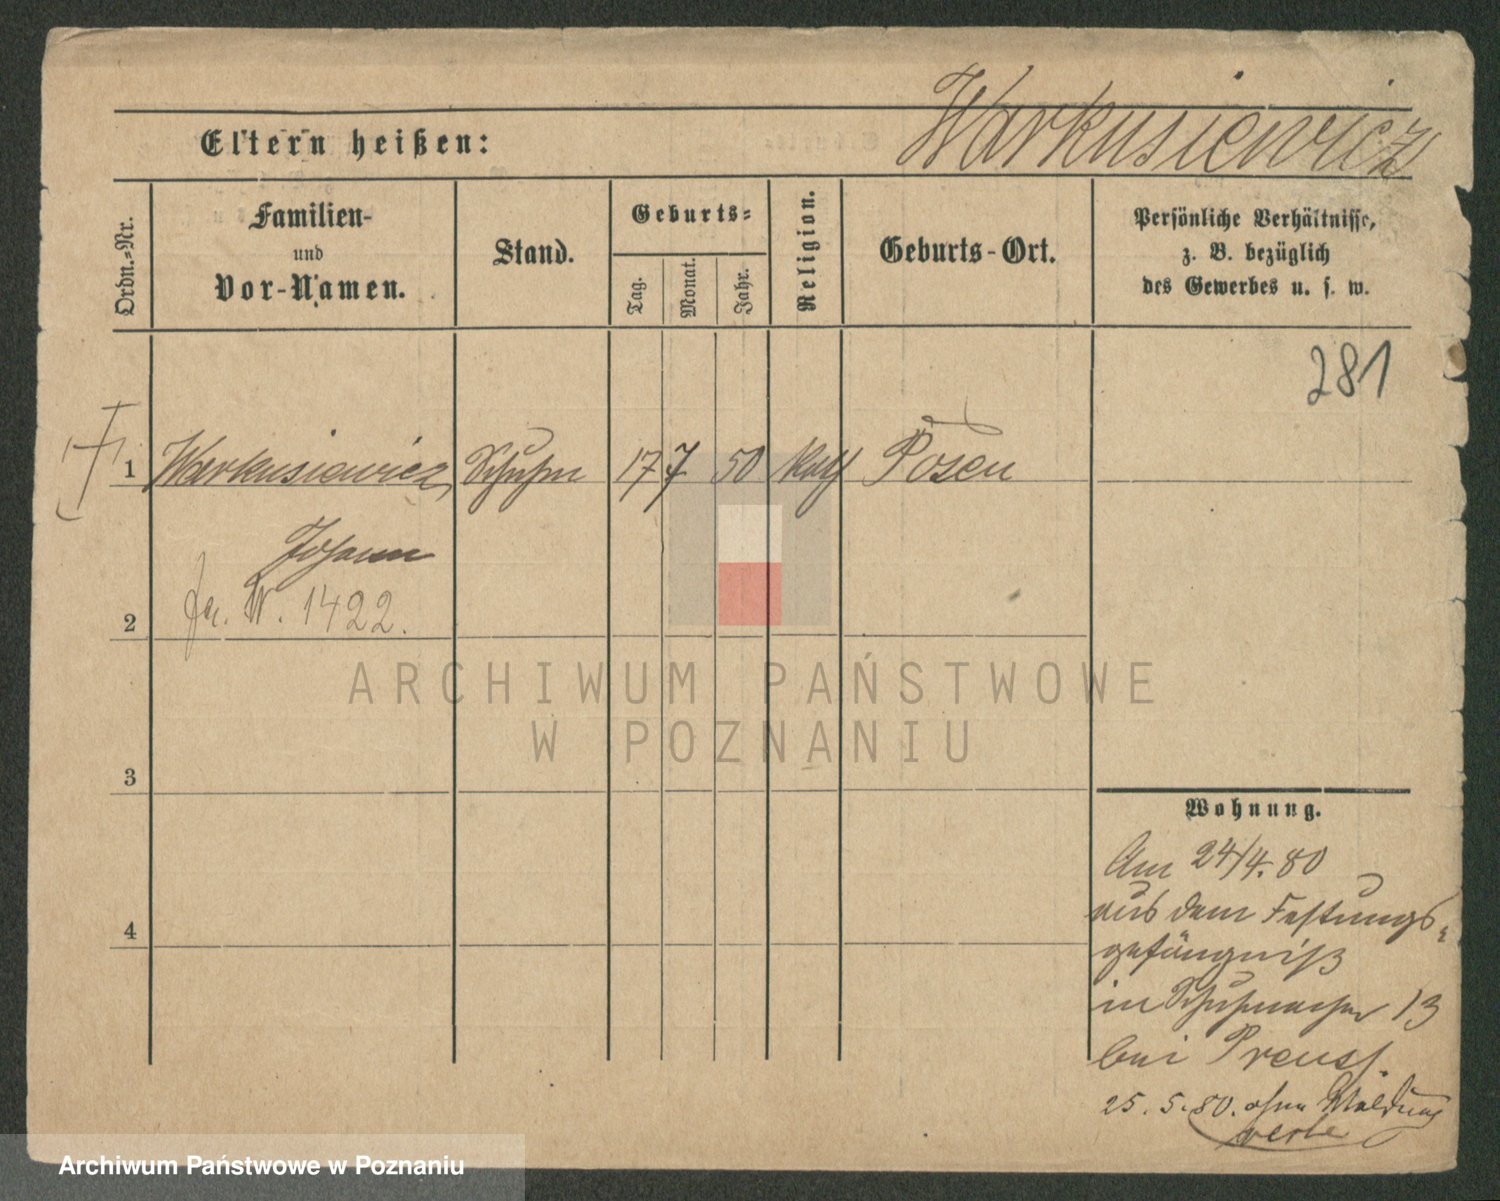 Warkusiewicz
Eltern heißen:
Ordn.-Nr.
Familien-
und
Vor-Namen.
Stand.
Geburts-
Tag.
Monat.
Jahr.
Religion.
Geburts-Ort.
Persönliche Verhältnisse,
z. B. bezüglich
des Gewerbes u. s. w.
281
1 Warkusiewicz, Schuhm 17 7 50 kath Posen
Johann
W. 1422.
2
ARCHIWUM PAŃSTWOWE
W POZNANIU
3
Wohnung.
Am 24/4. 80
aus dem Festungs-
gefängniß
4
in Schuhmacher 13
bei Preuss.
25. 5. 80. ohne Meldung
Archiwum Państwowe w Poznaniu